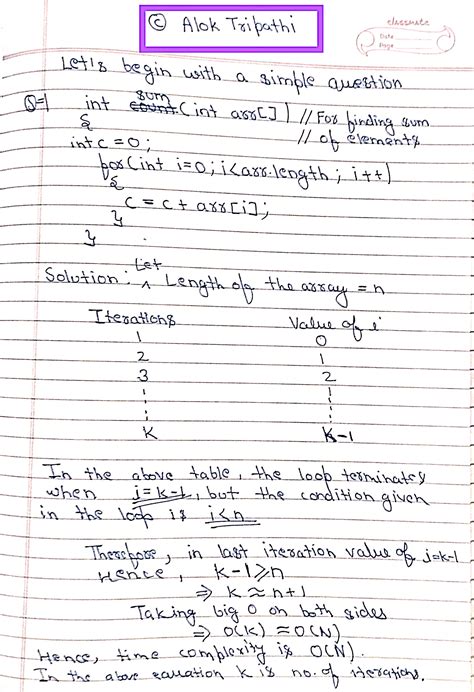 © Alok Tripathi
classmate
Date
Page
Let's begin with a simple question
Q-1 int count sum (int arr[]) // For finding sum
{ // of elements
int c = 0;
for(int i=0; i<arr.length; i++)
{
c = c + arr[i];
}
}
Solution: Let Length of the array = n
Iterations Value of i
1 0
2 1
3 2
K K-1
In the above table, the loop terminates
when i=k-1, but the condition given
in the loop is i<n
Therefore, in last iteration value of i=k-1
Hence, k-1≥n
⇒ k ≈ n+1
Taking big O on both sides
⇒ O(K) ≈ O(N)
Hence, time complexity is O(N).
In the above equation K is no. of iterations.